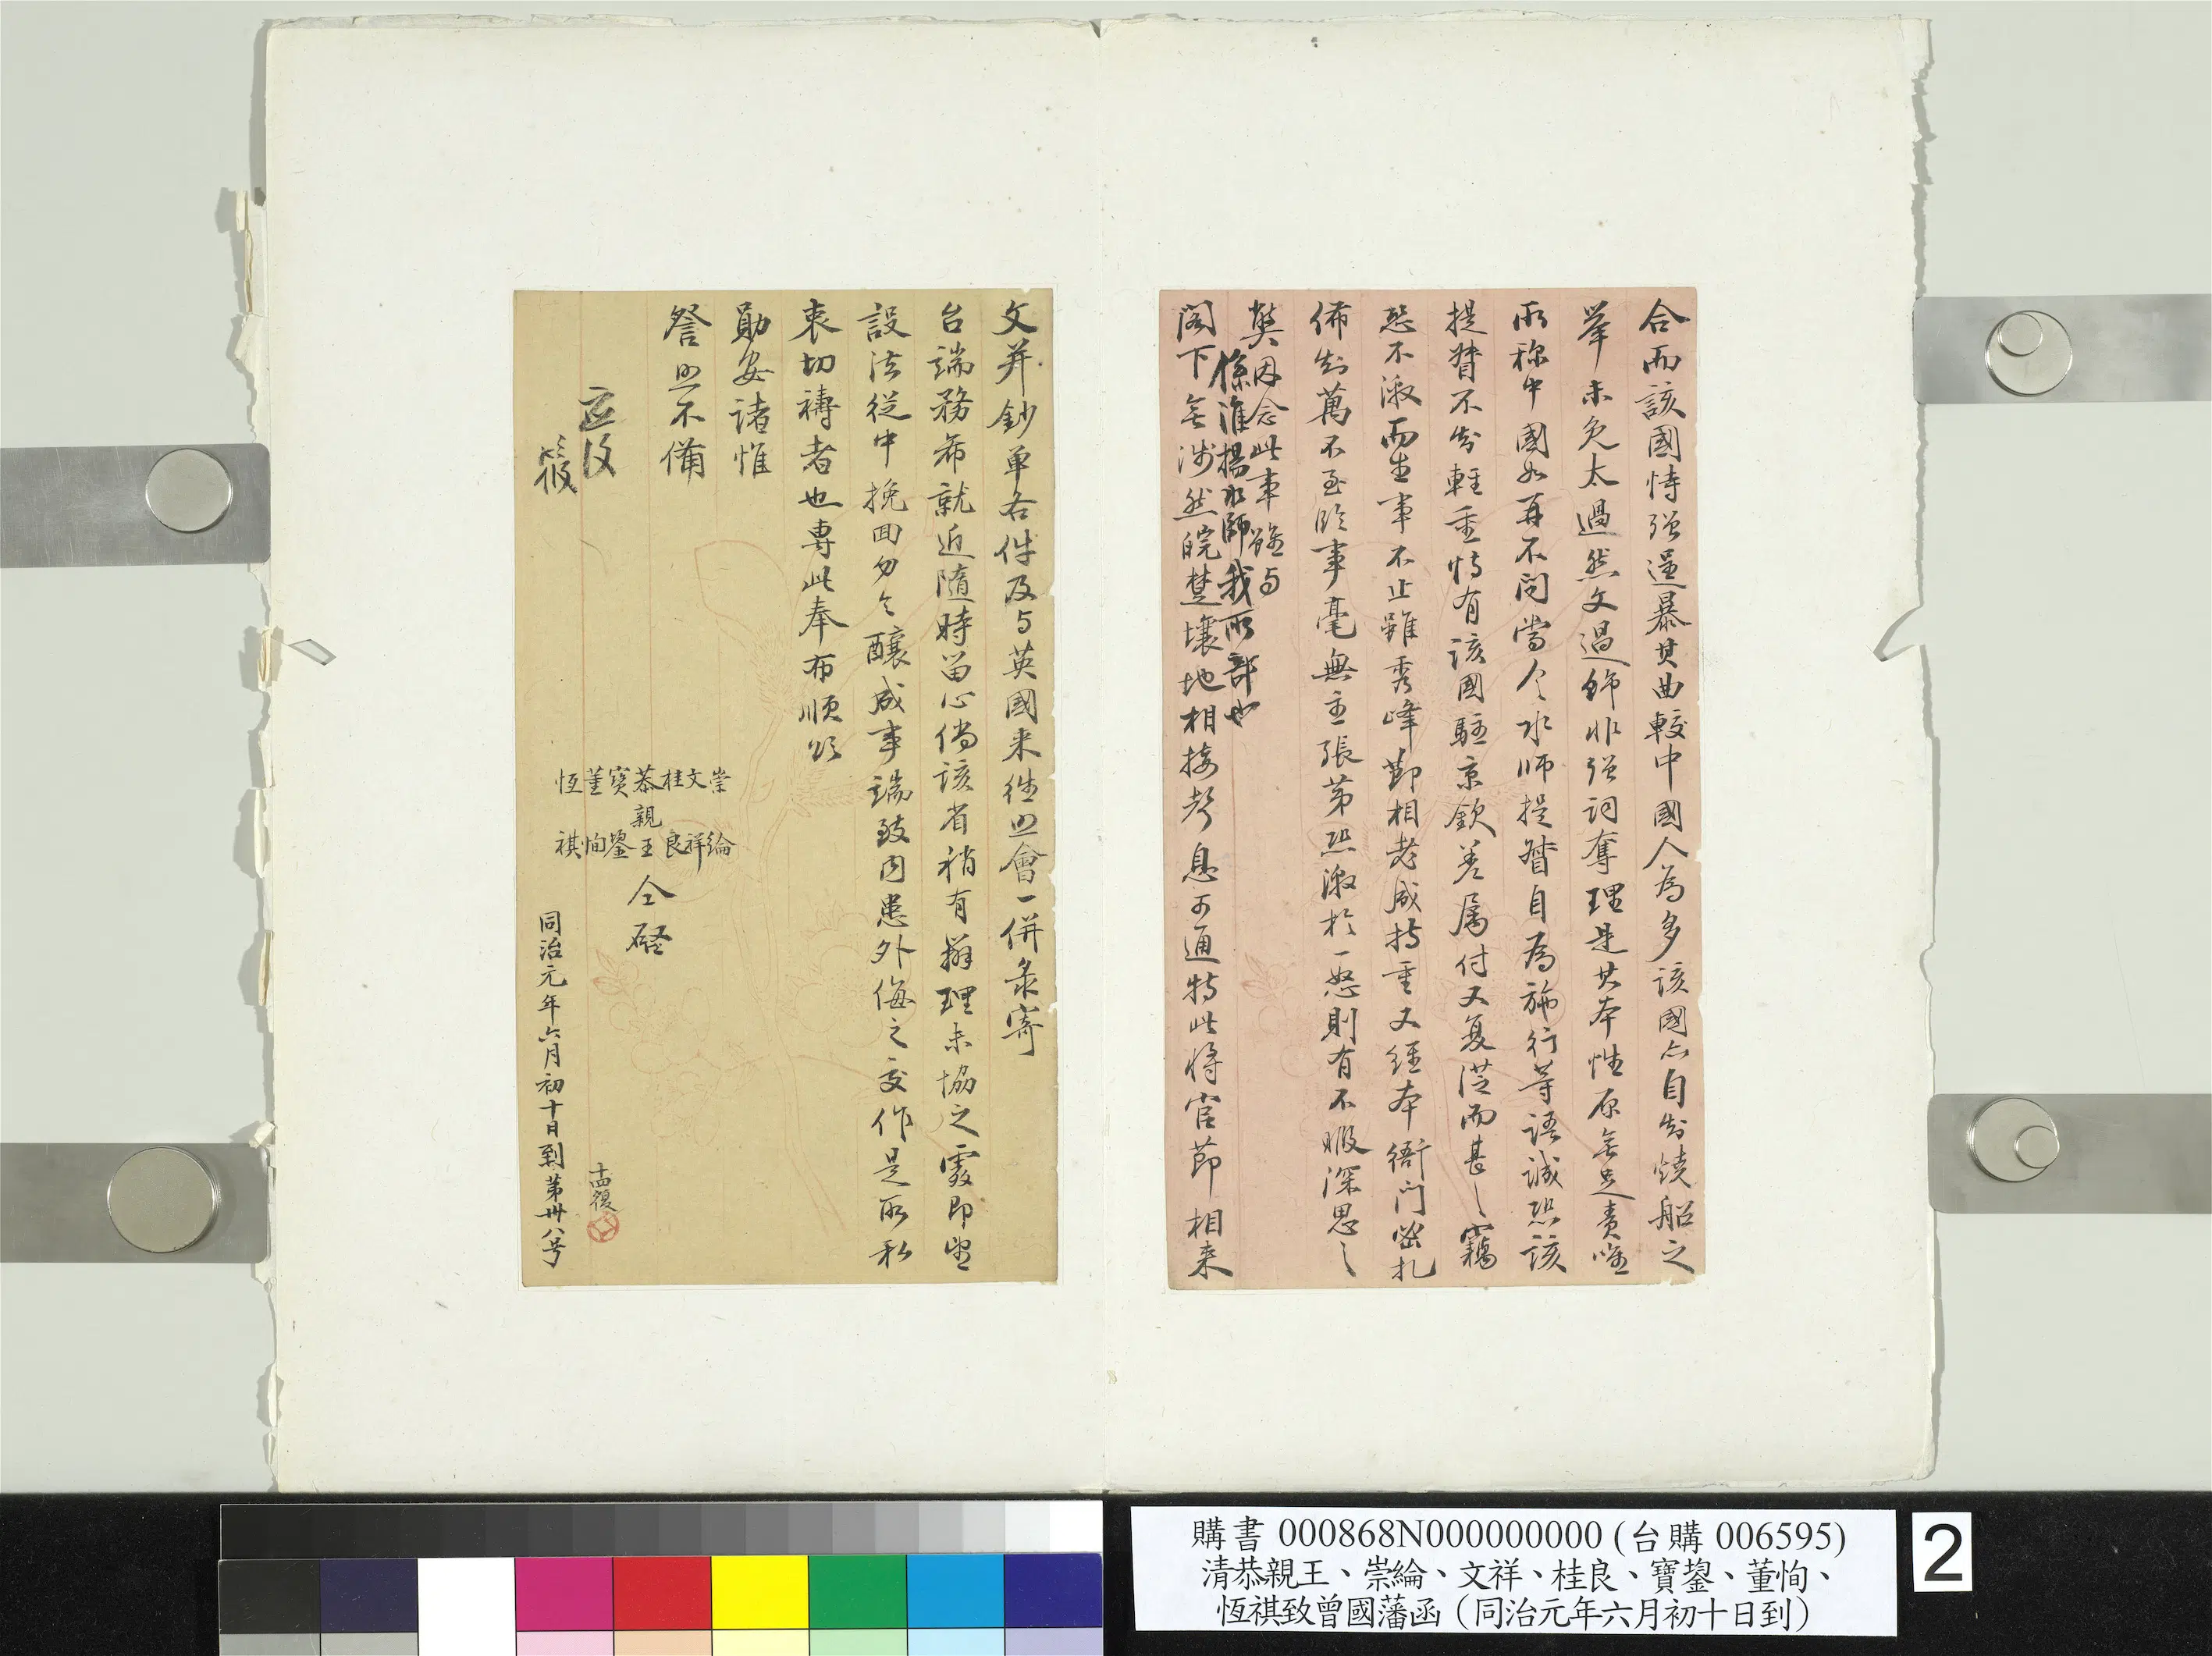 合而該國恃强逞暴其曲較中國人為多該國亦自知燒船之
舉未免太過然文過飾非强詞奪理是其本性原無足責唯
所稱中國如再不問當令水师提督自為施行等語誠恐該
提督不知輕重恃有該國駐京欽差屬付又复從而甚之竊
恐不激而生事不止雖秀峰節相老成持重又經本衙門密札
佈知萬不至臨事毫無主張第恐激於一怒則有不暇深思之
弊因念此事雖与
係淮揚水師我所部也
閣下無涉然皖楚壤地相接聲息可通特此將官節相来
文并鈔单各件及与英國来往照會一併彔寄
台端務希就近隨時留心倘該省稍有辦理未協之處即望
設法從中挽回勿令釀成事端致内患外侮之交作是所私
衷切禱者也專此奉布順頌
勛安諸惟
詧照不備
崇綸
文祥
桂良
恭親王
寶鋆
董恂
恆祺
仝啓
十四復
同治元年六月初十日到第卅八号
購書 000868N000000000 (台購 006595)
清恭親王、崇綸、文祥、桂良、寶鋆、董恂、
恆祺致曾國藩函（同治元年六月初十日到）
2